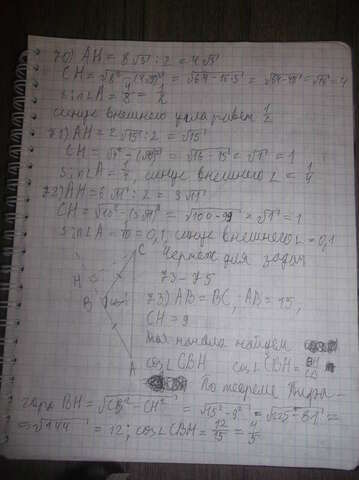 70) AH = 8√3 : 2 = 4√3
CH = √8² - (4√3)² = √64 - 16·3 = √64 - 48 = √16 = 4
sin∠A = 4/8 = 1/2
синус внешнего угла равен 1/2
71) AH = 2√15 : 2 = √15
CH = √4² - (√15)² = √16 - 15 = √1 = 1
sin∠A = 1/4, синус внешнего ∠ = 1/4
72) AH = 6√11 : 2 = 3√11
CH = √10² - (3√11)² = √100 - 99 = √1 = 1
sin∠A = 10 = 0,1, синус внешнего ∠ = 0,1
C Чертеж для задач
H 73-75
B 73) AB = BC; AB = 15,
CH = 9
найдем
A cos∠CBH cos∠CBH = BH
По теореме Пифа-
гора BH = √CB² - CH² = √15² - 9² = √225 - 81 =
= √144 = 12; cos∠CBH = 12/15 = 4/5